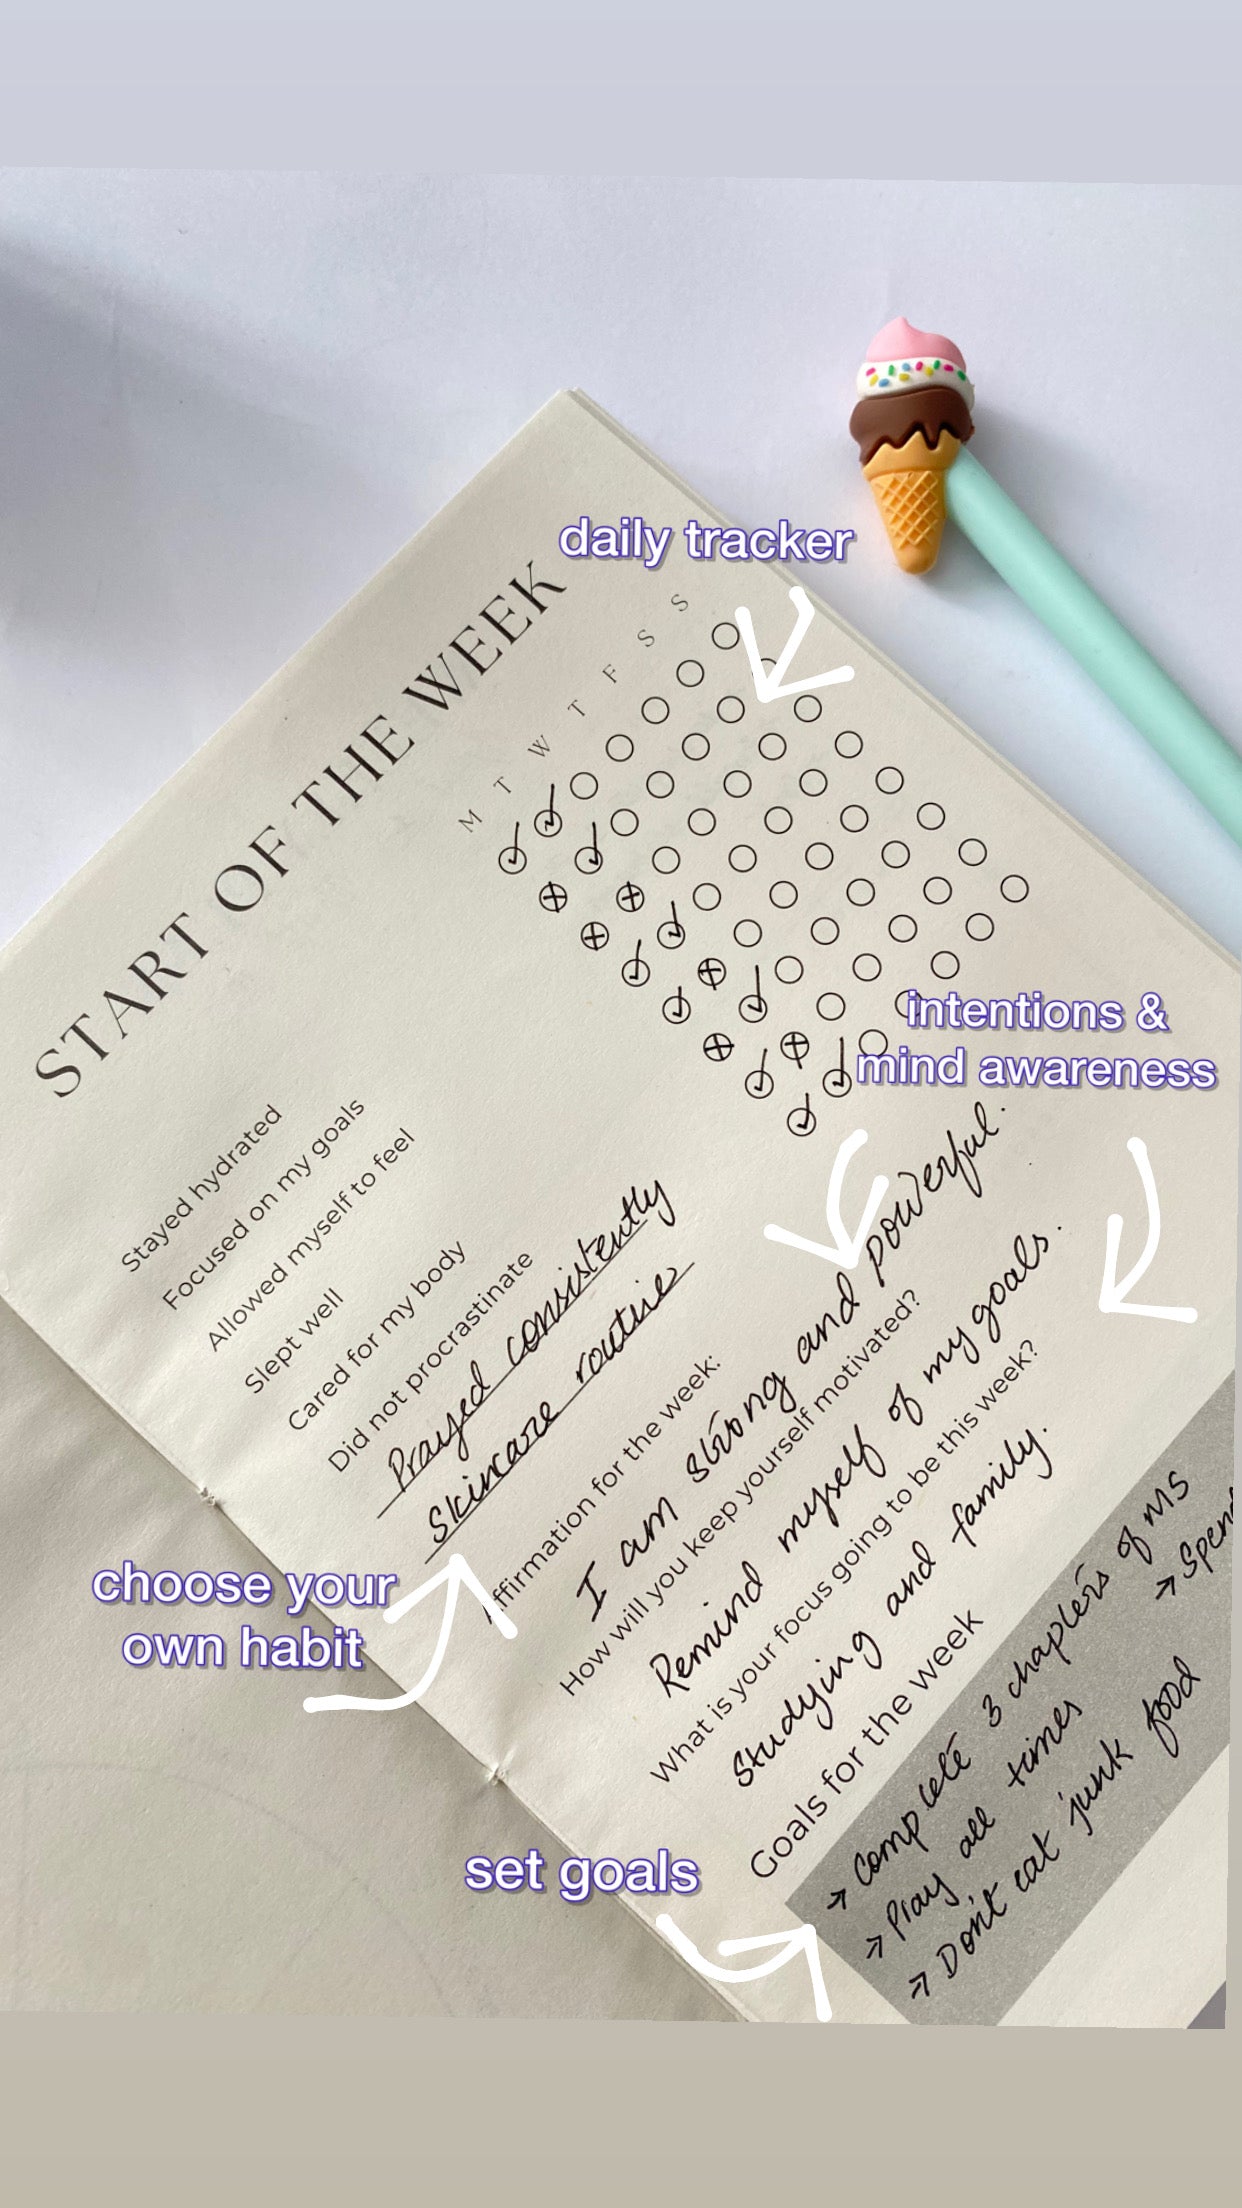 daily tracker
START OF THE WEEK
M T W T F S S
intentions &
mind awareness
Stayed hydrated
Focused on my goals
Allowed myself to feel
Slept well
Cared for my body
Did not procrastinate
Prayed consistently
Skincare routine
choose your
own habit
Affirmation for the week:
I am strong and powerful.
How will you keep yourself motivated?
Remind myself of my goals.
What is your focus going to be this week?
Studying and family.
set goals
Goals for the week
→ Complete 3 chapters of MS
→ Pray all times
→ Don't eat junk food